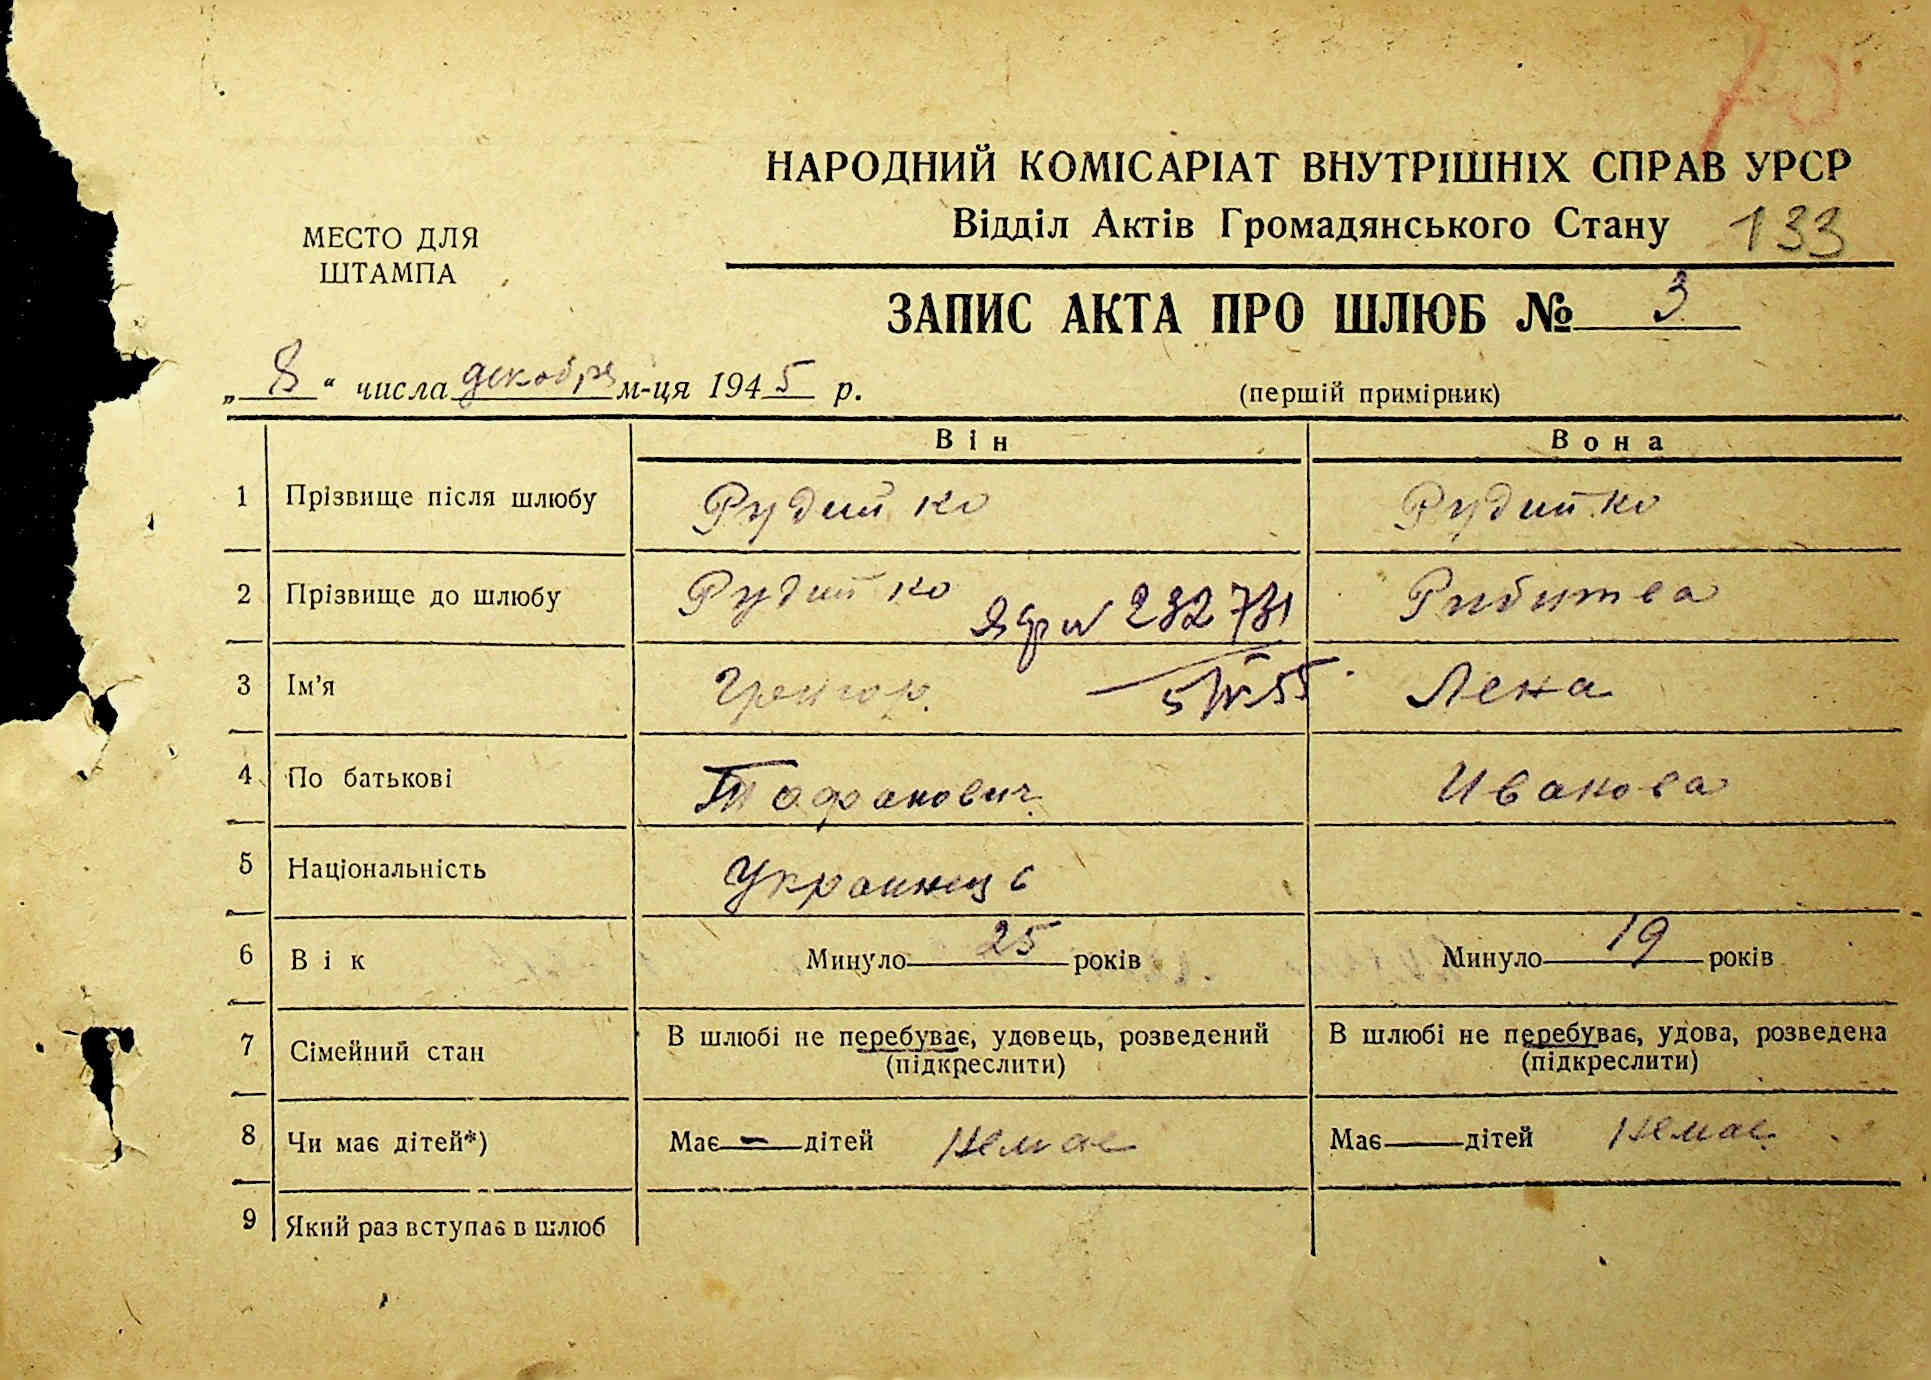 НАРОДНИЙ КОМІСАРІАТ ВНУТРІШНІХ СПРАВ УРСР
Відділ Актів Громадянського Стану 133
МЕСТО ДЛЯ
ШТАМПА
ЗАПИС АКТА ПРО ШЛЮБ № 3
„ 8 “ числа декобря м-ця 1945 р.
(першій примірник)
Він Вона
1 Прізвище після шлюбу Рудийко Рудийко
2 Прізвище до шлюбу Рудийко 232731
3 Ім'я Лена
4 По батькові Ивакова
5 Національність Украинець
6 Вік Минуло 25 років Минуло 19 років
7 Сімейний стан В шлюбі не перебуває, удовець, розведений В шлюбі не перебуває, удова, розведена
(підкреслити) (підкреслити)
8 Чи має дітей*) Має — дітей Немає Має дітей Немає
9 Який раз вступає в шлюб